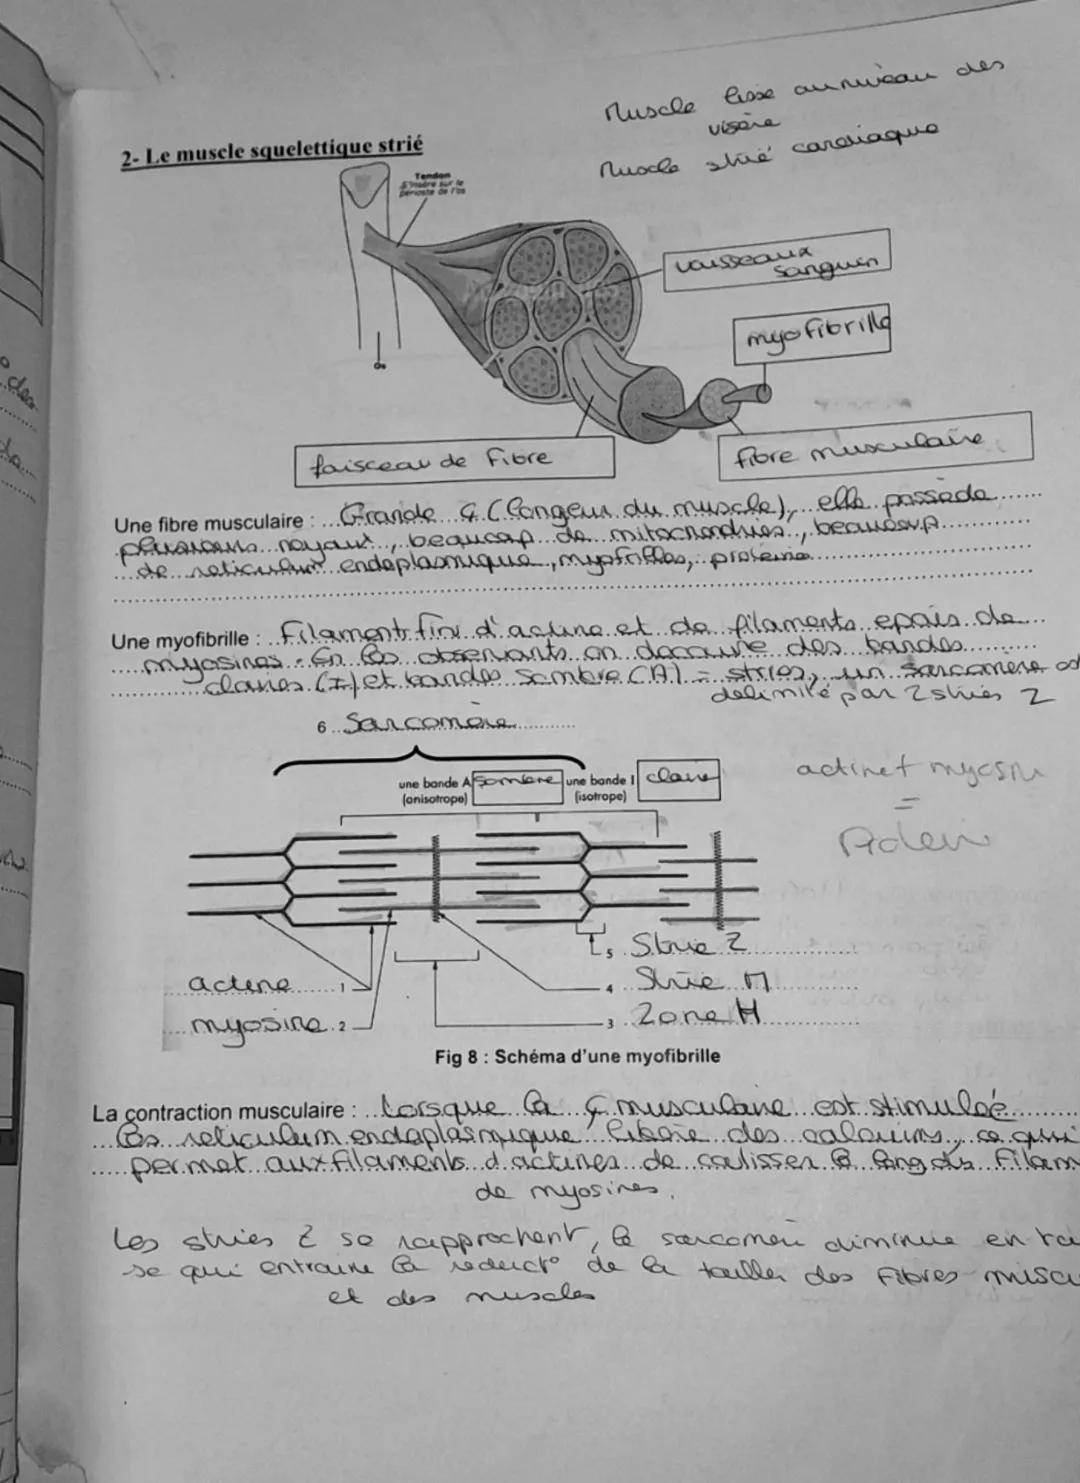 Muscle lisse au niveau des
visère
Muscle strié cardiaque
2- Le muscle squelettique strié
Tendon
S'insère sur le
périoste de l'os
vaisseaux
sanguin
myofibrille
Os
faisceau de Fibre
fibre musculaire
Une fibre musculaire : Grande ¢ (longeur du muscle), elle possède
plusieurs noyaux, beaucoup de mitochondries, beaucoup
de reticulum endoplasmique, myofrilles, proteine
Une myofibrille : Filament fini d'actine et de filaments epais de
myosines. En les observants on decouvre des bandes
claires (I) et bandes sombre (A) = stries, un sarcomère
delimité par 2 stries Z
6 Sarcomère
une bande A sombre une bande I claire
(anisotrope) (isotrope)
actinet myosin
=
5 Strie Z
actine 1
4 Strie M
myosine 2
3 Zone H
Fig 8 : Schéma d'une myofibrille
La contraction musculaire : Lorsque la ¢ musculaire est stimuleé
les reticulum endoplasmique libère des calciums, ce qui
permet aux filaments d'actines de coulisser le long des Filam
de myosines.
Les stries Z se rapprochent, le sarcomère diminue en ta
se qui entraine la reduct° de la tailler des Fibres muscu
et des muscles